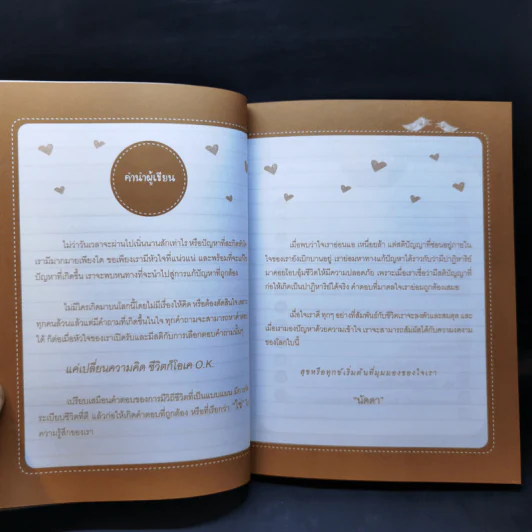 คำนำผู้เขียน
ไม่ว่าวันเวลาจะผ่านไปเนิ่นนานสักเท่าไร หรือปัญหาที่
เรามีมากมายเพียงใด ขอเพียงเรามีหัวใจที่แน่วแน่ และพร้อมที่จะแก้ไข
ปัญหาที่เกิดขึ้น เราจะพบหนทางที่จะนำไปสู่การแก้ปัญหาที่ถูกต้อง
ไม่มีใครเกิดมาบนโลกนี้โดยไม่มีเรื่องให้คิด หรือต้องตัดสินใจ
ทุกคนล้วนแล้วแต่มีคำถามที่เกิดขึ้นในใจ ทุกคำถามจะสามารถหาคำตอบ
ได้ ก็ต่อเมื่อหัวใจของเราเปิดรับและมีสติกับการเลือกตอบคำถามนั้นๆ
แค่เปลี่ยนความคิด ชีวิตก็โอเค O.K.
เปรียบเสมือนคำตอบของการมีวิถีชีวิตที่เป็นแบบแผน
ระเบียบชีวิตที่ดี แล้วก่อให้เกิดคำตอบที่ถูกต้อง หรือที่เรียกว่า "ใช่"
ความรู้สึกของเรา
เมื่อพบว่าใจเราอ่อนแอ เหนื่อยล้า แต่สติปัญญาที่ซ่อนอยู่ภายใน
ใจของเรายังเบิกบานอยู่ เราย่อมหาทางแก้ปัญหาได้ราวกับว่ามีปาฏิหาริย์
มาคอยโอบอุ้มชีวิตให้มีความปลอดภัย เพราะเมื่อเราเชื่อว่ามีสติปัญญาที่
ก่อให้เกิดเป็นปาฏิหาริย์ได้จริง คำตอบที่มาดลใจเราย่อมถูกต้องเสมอ
เมื่อใจเราดี ทุกๆ อย่างที่สัมพันธ์กับชีวิตเราจะลงตัวและสมดุล และ
เมื่อเรามองปัญหาด้วยความเข้าใจ เราจะสามารถสัมผัสได้กับความงดงาม
ของโลกใบนี้
สุขหรือทุกข์เริ่มต้นที่มุมมองของใจเรา
"นัดดา"